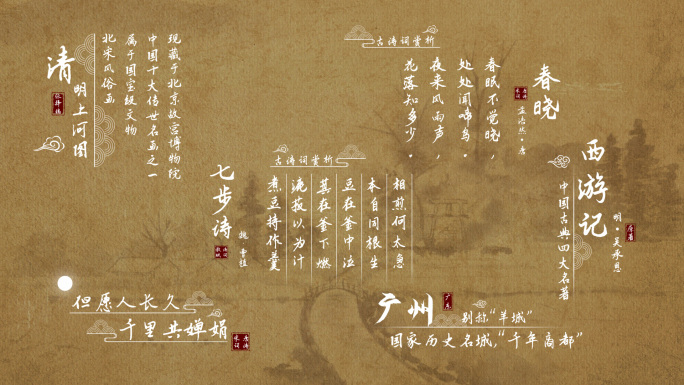 清明上河图
张择端
现藏于北京故宫博物院
中国十大传世名画之一
属于国宝级文物
北宋风俗画
古诗词赏析
春晓
孟浩然·唐
唐诗
宋词
春眠不觉晓，
处处闻啼鸟。
夜来风雨声，
花落知多少。
七步诗
魏 曹植
古诗词赏析
煮豆持作羹
漉菽以为汁
萁在釜下燃
豆在釜中泣
本自同根生
相煎何太急
西游记
明·吴承恩
中国古典四大名著
但愿人长久
千里共婵娟
唐诗
宋词
广州
广东
别称“羊城”
国家历史名城，“千年商都”